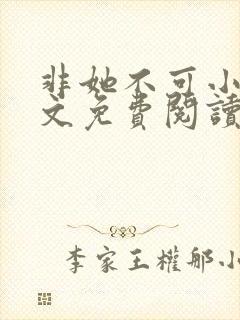 非她不可小
文免費閱讀
李家王權邮小